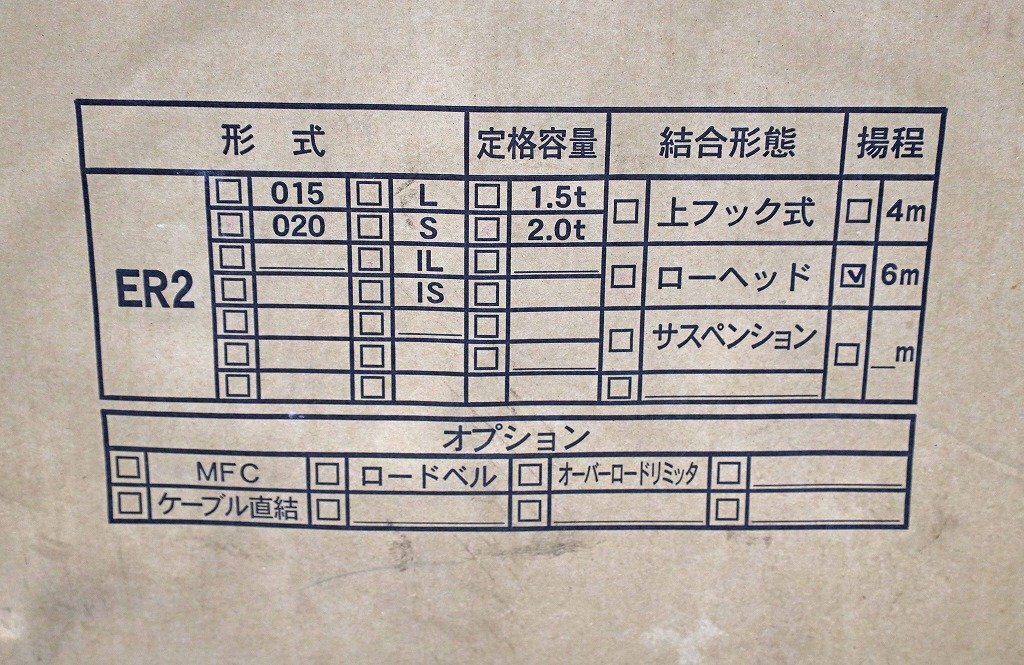 形 式 定格容量 結合形態 揚程
ER2
☐ 015 ☐ L ☐ 1.5t ☐ 上フック式 ☐ 4m
☐ 020 ☐ S ☐ 2.0t
☐ ____ ☐ IL ☐ ____ ☐ ローヘッド ☑ 6m
☐ ☐ IS ☐
☐ ☐ ____ ☐ ☐ サスペンション ☐ _m
☐ ☐ ☐ ____
☐ ☐ ☐ ____
オプション
☐ MFC ☐ ロードベル ☐ オーバーロードリミッタ ☐ ____
☐ ケーブル直結 ☐ ____ ☐ ____ ☐ ____